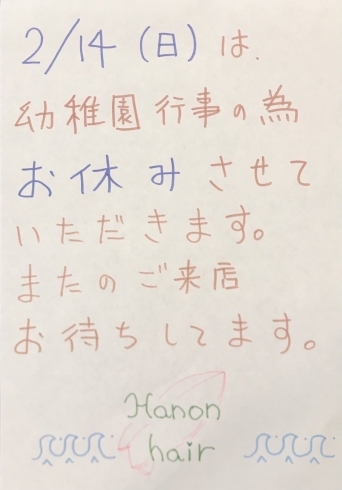 2/14(日)は、
幼稚園行事の為
お休みさせて
いただきます。
またのご来店
お待ちしてます。
Hanon
hair